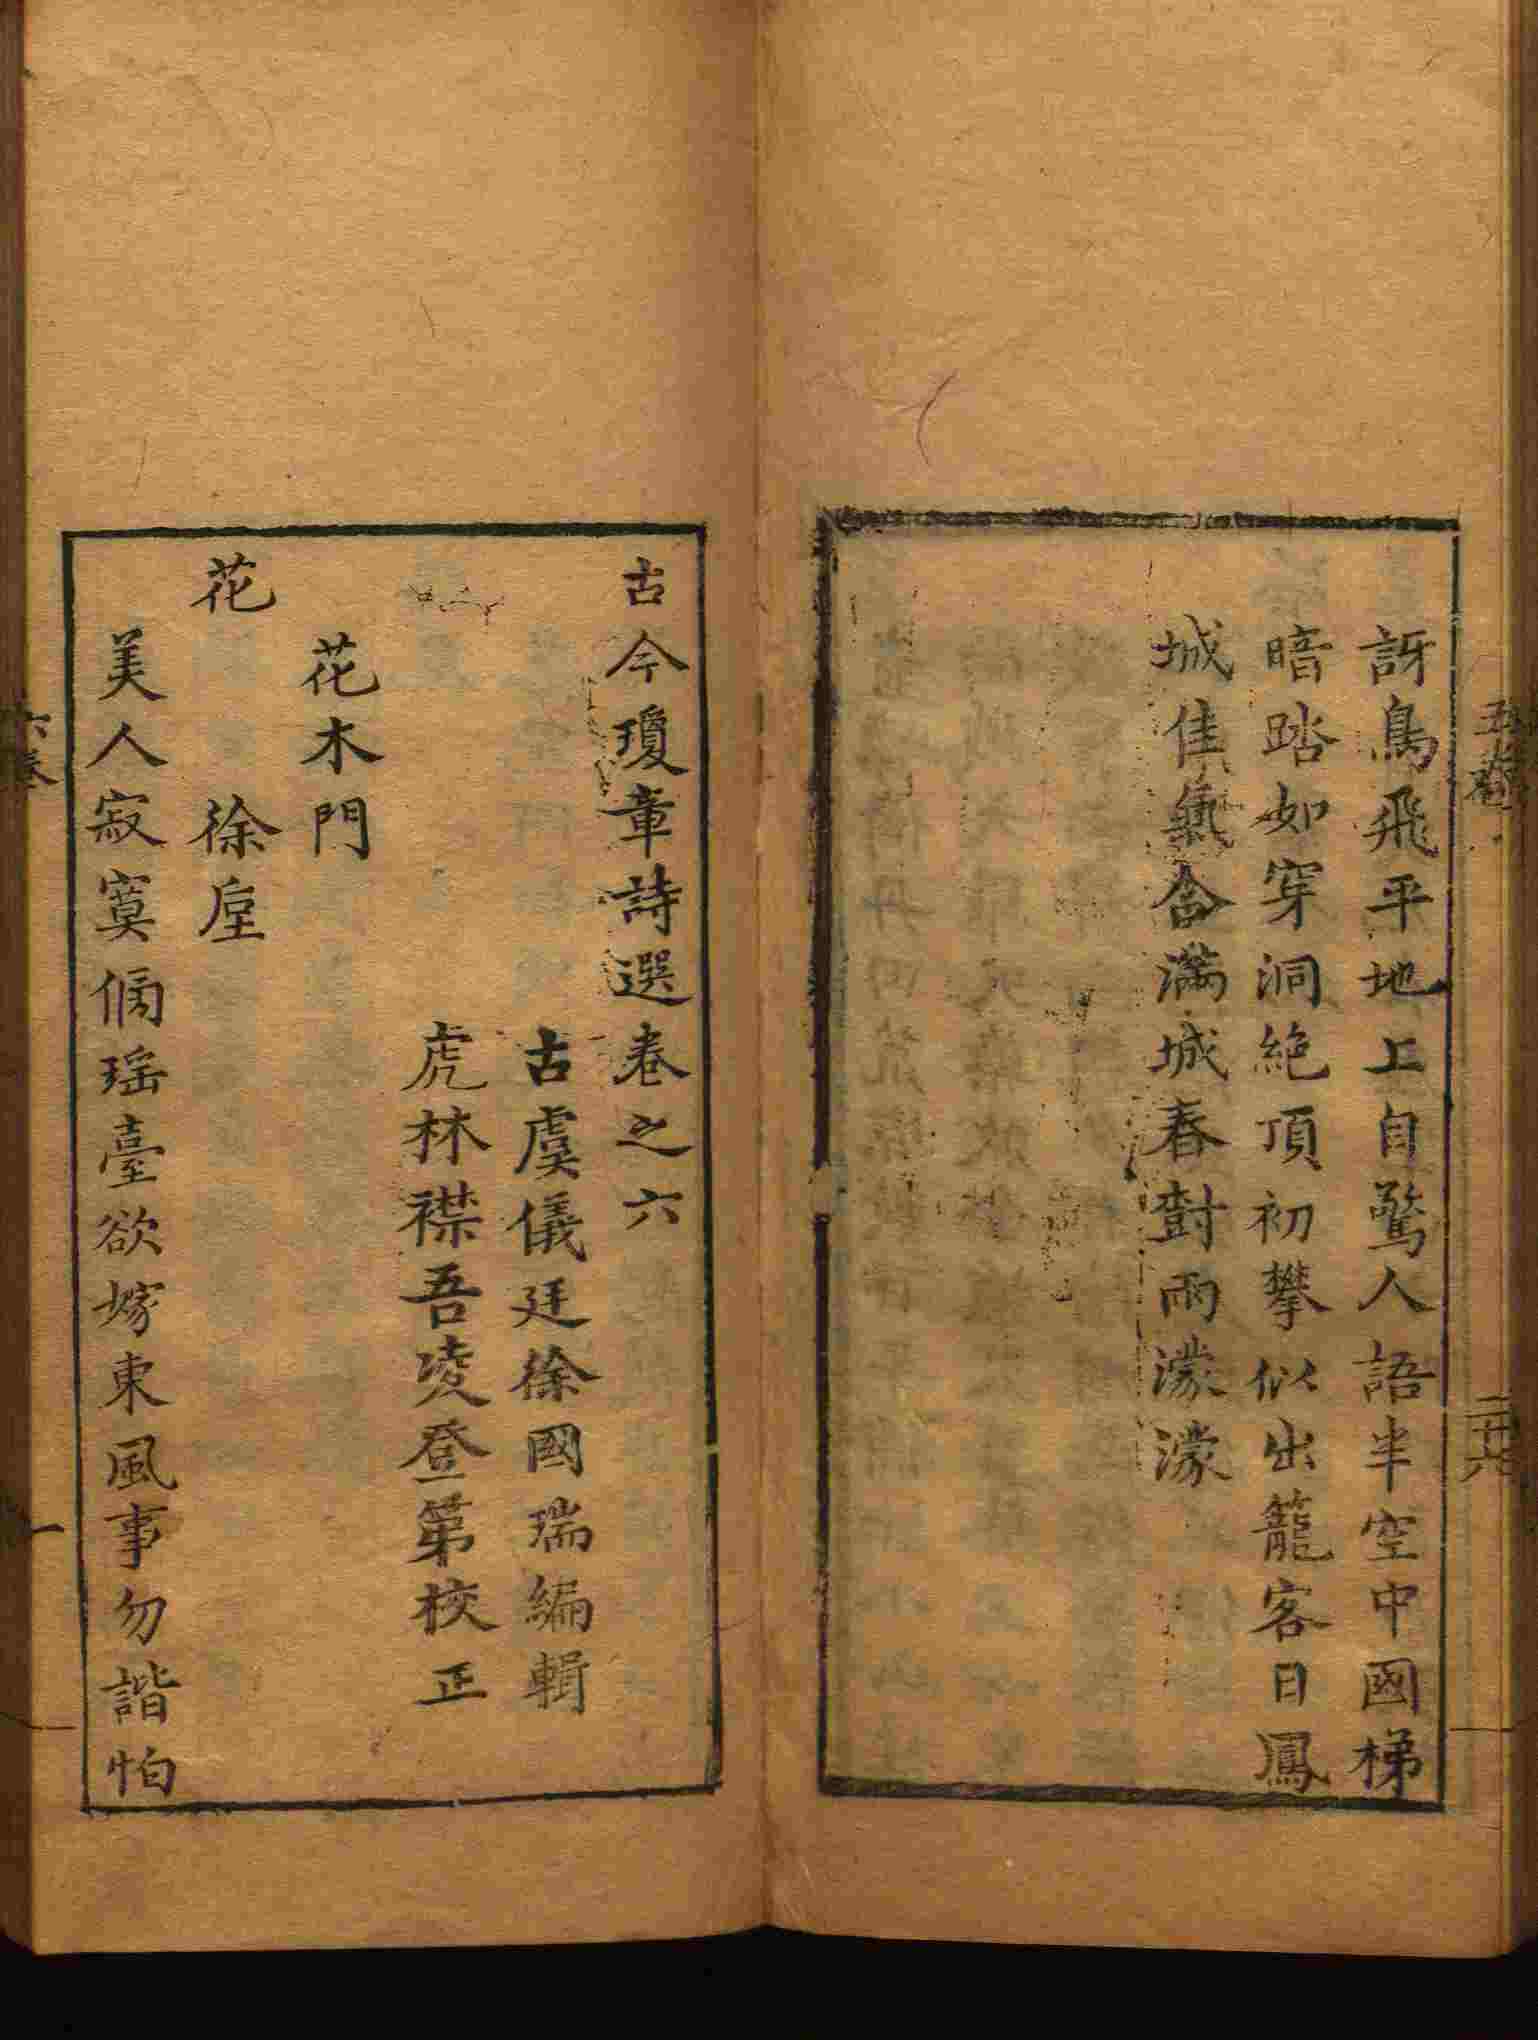 訝鳥飛平地上自驚人語半空中國梯
暗踏如穿洞絕頂初攀似出籠客日鳳
城佳氣含滿城春對雨濛濛
二十六
古今瓊章詩選卷之六
古虞儀廷徐國瑞編輯
虎林襟吾凌登第校正
花木門
花 徐垕
美人寂寞倚瑶臺欲嫁東風事勿諧怕
六卷
一